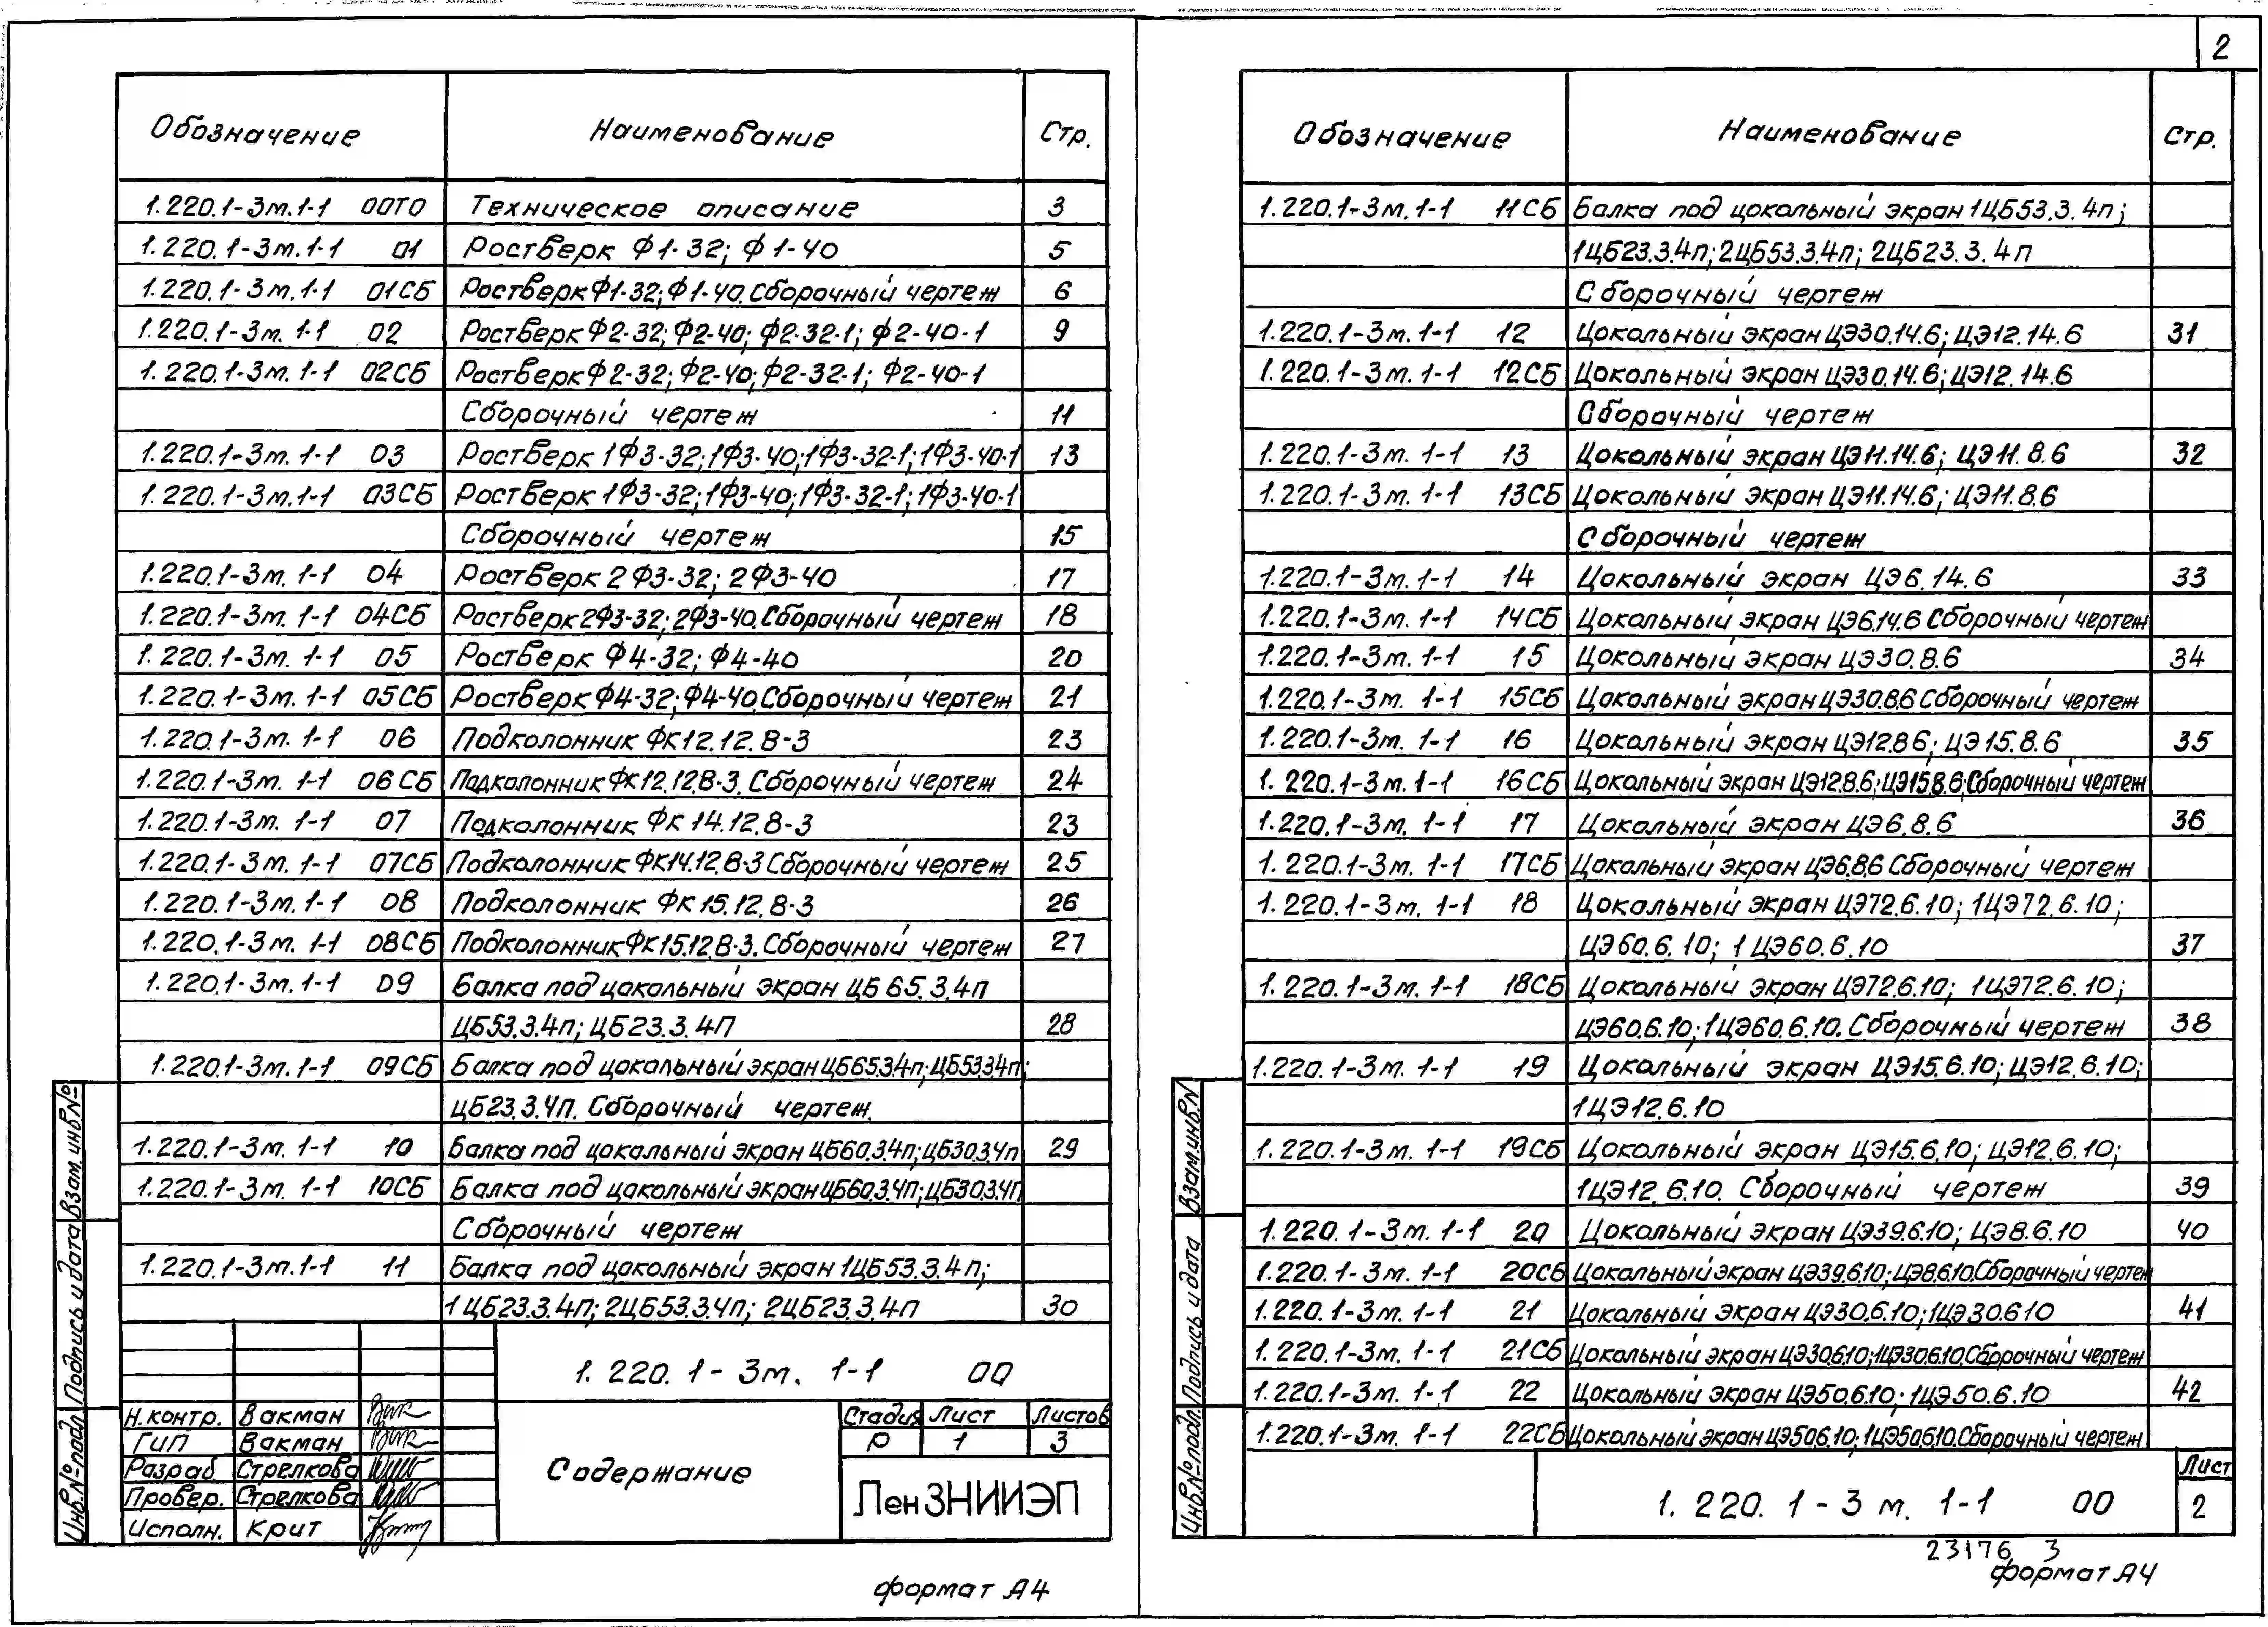 2
Обозначение Наименование Стр.
1.220.1-3м.1-1 00ТО Техническое описание 3
1.220.1-3м.1-1 01 Ростверк Ф1-32; Ф1-40 5
1.220.1-3м.1-1 01СБ Ростверк Ф1-32; Ф1-40. Сборочный чертеж 6
1.220.1-3м.1-1 02 Ростверк Ф2-32; Ф2-40; Ф2-32-1; Ф2-40-1 9
1.220.1-3м.1-1 02СБ Ростверк Ф2-32; Ф2-40; Ф2-32-1; Ф2-40-1
Сборочный чертеж 11
1.220.1-3м.1-1 03 Ростверк 1Ф3-32; 1Ф3-40; 1Ф3-32-1; 1Ф3-40-1 13
1.220.1-3м.1-1 03СБ Ростверк 1Ф3-32; 1Ф3-40; 1Ф3-32-1; 1Ф3-40-1
Сборочный чертеж 15
1.220.1-3м.1-1 04 Ростверк 2Ф3-32; 2Ф3-40 17
1.220.1-3м.1-1 04СБ Ростверк 2Ф3-32; 2Ф3-40. Сборочный чертеж 18
1.220.1-3м.1-1 05 Ростверк Ф4-32; Ф4-40 20
1.220.1-3м.1-1 05СБ Ростверк Ф4-32; Ф4-40. Сборочный чертеж 21
1.220.1-3м.1-1 06 Подколонник ФК12.12.8-3 23
1.220.1-3м.1-1 06СБ Подколонник ФК12.12.8-3. Сборочный чертеж 24
1.220.1-3м.1-1 07 Подколонник ФК14.12.8-3 23
1.220.1-3м.1-1 07СБ Подколонник ФК14.12.8-3 Сборочный чертеж 25
1.220.1-3м.1-1 08 Подколонник ФК15.12.8-3 26
1.220.1-3м.1-1 08СБ Подколонник ФК15.12.8-3. Сборочный чертеж 27
1.220.1-3м.1-1 09 Балка под цокольный экран ЦБ65.3.4п
ЦБ53.3.4п; ЦБ23.3.4П 28
1.220.1-3м.1-1 09СБ Балка под цокольный экран ЦБ65.3.4п; ЦБ53.3.4п;
ЦБ23.3.4п. Сборочный чертеж.
1.220.1-3м.1-1 10 Балка под цокольный экран ЦБ60.3.4п; ЦБ30.3.4п 29
1.220.1-3м.1-1 10СБ Балка под цокольный экран ЦБ60.3.4п; ЦБ30.3.4п
Сборочный чертеж
1.220.1-3м.1-1 11 Балка под цокольный экран 1ЦБ53.3.4п;
1ЦБ23.3.4п; 2ЦБ53.3.4п; 2ЦБ23.3.4п 30
1.220.1-3м.1-1 00
Н.контр. Вакман
ГИП Вакман
Разраб Стрелкова
Провер. Стрелкова
Исполн. Крит
Содержание
Стадия Лист Листов
Р 1 3
ЛенЗНИИЭП
Взам.инв.№
Подпись и дата
Инв.№ подл.
формат А4
Обозначение Наименование Стр.
1.220.1-3м.1-1 11СБ Балка под цокольный экран 1ЦБ53.3.4п;
1ЦБ23.3.4п; 2ЦБ53.3.4п; 2ЦБ23.3.4п
Сборочный чертеж
1.220.1-3м.1-1 12 Цокольный экран ЦЭ30.14.6; ЦЭ12.14.6 31
1.220.1-3м.1-1 12СБ Цокольный экран ЦЭ30.14.6; ЦЭ12.14.6
Сборочный чертеж
1.220.1-3м.1-1 13 Цокольный экран ЦЭ11.14.6; ЦЭ11.8.6 32
1.220.1-3м.1-1 13СБ Цокольный экран ЦЭ11.14.6; ЦЭ11.8.6
Сборочный чертеж
1.220.1-3м.1-1 14 Цокольный экран ЦЭ6.14.6 33
1.220.1-3м.1-1 14СБ Цокольный экран ЦЭ6.14.6 Сборочный чертеж
1.220.1-3м.1-1 15 Цокольный экран ЦЭ30.8.6 34
1.220.1-3м.1-1 15СБ Цокольный экран ЦЭ30.8.6 Сборочный чертеж
1.220.1-3м.1-1 16 Цокольный экран ЦЭ12.8.6; ЦЭ15.8.6 35
1.220.1-3м.1-1 16СБ Цокольный экран ЦЭ12.8.6; ЦЭ15.8.6; Сборочный чертеж
1.220.1-3м.1-1 17 Цокольный экран ЦЭ6.8.6 36
1.220.1-3м.1-1 17СБ Цокольный экран ЦЭ6.8.6 Сборочный чертеж
1.220.1-3м.1-1 18 Цокольный экран ЦЭ72.6.10; 1ЦЭ72.6.10;
ЦЭ60.6.10; 1ЦЭ60.6.10 37
1.220.1-3м.1-1 18СБ Цокольный экран ЦЭ72.6.10; 1ЦЭ72.6.10;
ЦЭ60.6.10; 1ЦЭ60.6.10. Сборочный чертеж 38
1.220.1-3м.1-1 19 Цокольный экран ЦЭ15.6.10; ЦЭ12.6.10;
1ЦЭ12.6.10
1.220.1-3м.1-1 19СБ Цокольный экран ЦЭ15.6.10; ЦЭ12.6.10;
1ЦЭ12.6.10. Сборочный чертеж 39
1.220.1-3м.1-1 20 Цокольный экран ЦЭ39.6.10; ЦЭ8.6.10 40
1.220.1-3м.1-1 20СБ Цокольный экран ЦЭ39.6.10; ЦЭ8.6.10. Сборочный чертеж
1.220.1-3м.1-1 21 Цокольный экран ЦЭ30.6.10; 1ЦЭ30.6.10 41
1.220.1-3м.1-1 21СБ Цокольный экран ЦЭ30.6.10; 1ЦЭ30.6.10. Сборочный чертеж
1.220.1-3м.1-1 22 Цокольный экран ЦЭ50.6.10; 1ЦЭ50.6.10 42
1.220.1-3м.1-1 22СБ Цокольный экран ЦЭ50.6.10; 1ЦЭ50.6.10. Сборочный чертеж
1.220.1-3м.1-1 00
Лист
2
Взам.инв.N
Подпись и дата
Инв.№ подл.
23176 3
формат А4